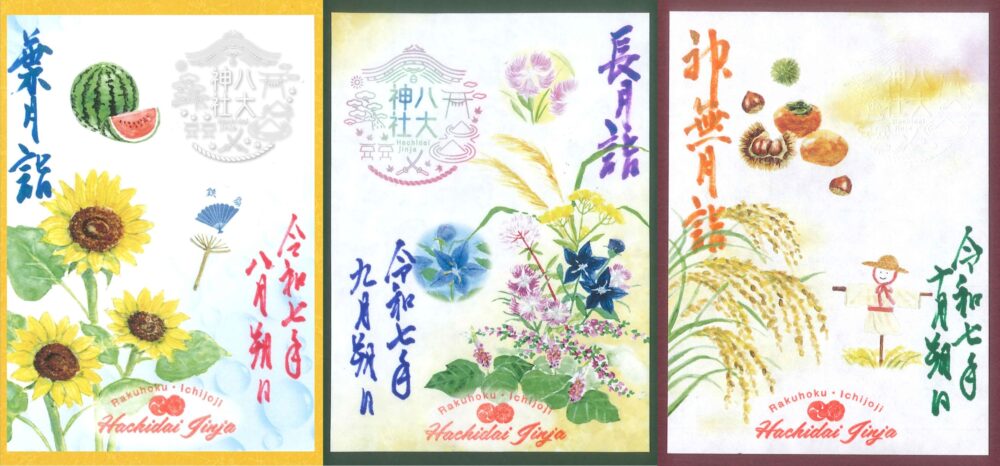 葉月詣
八大
神社
令和七年
八月朔日
Rakuhoku・Ichijoji
Hachidai Jinja
長月詣
八大
神社
Hachidai
Jinja
令和七年
九月朔日
Rakuhoku・Ichijoji
Hachidai Jinja
神無月詣
令和七年
十月朔日
Rakuhoku・Ichijoji
Hachidai Jinja